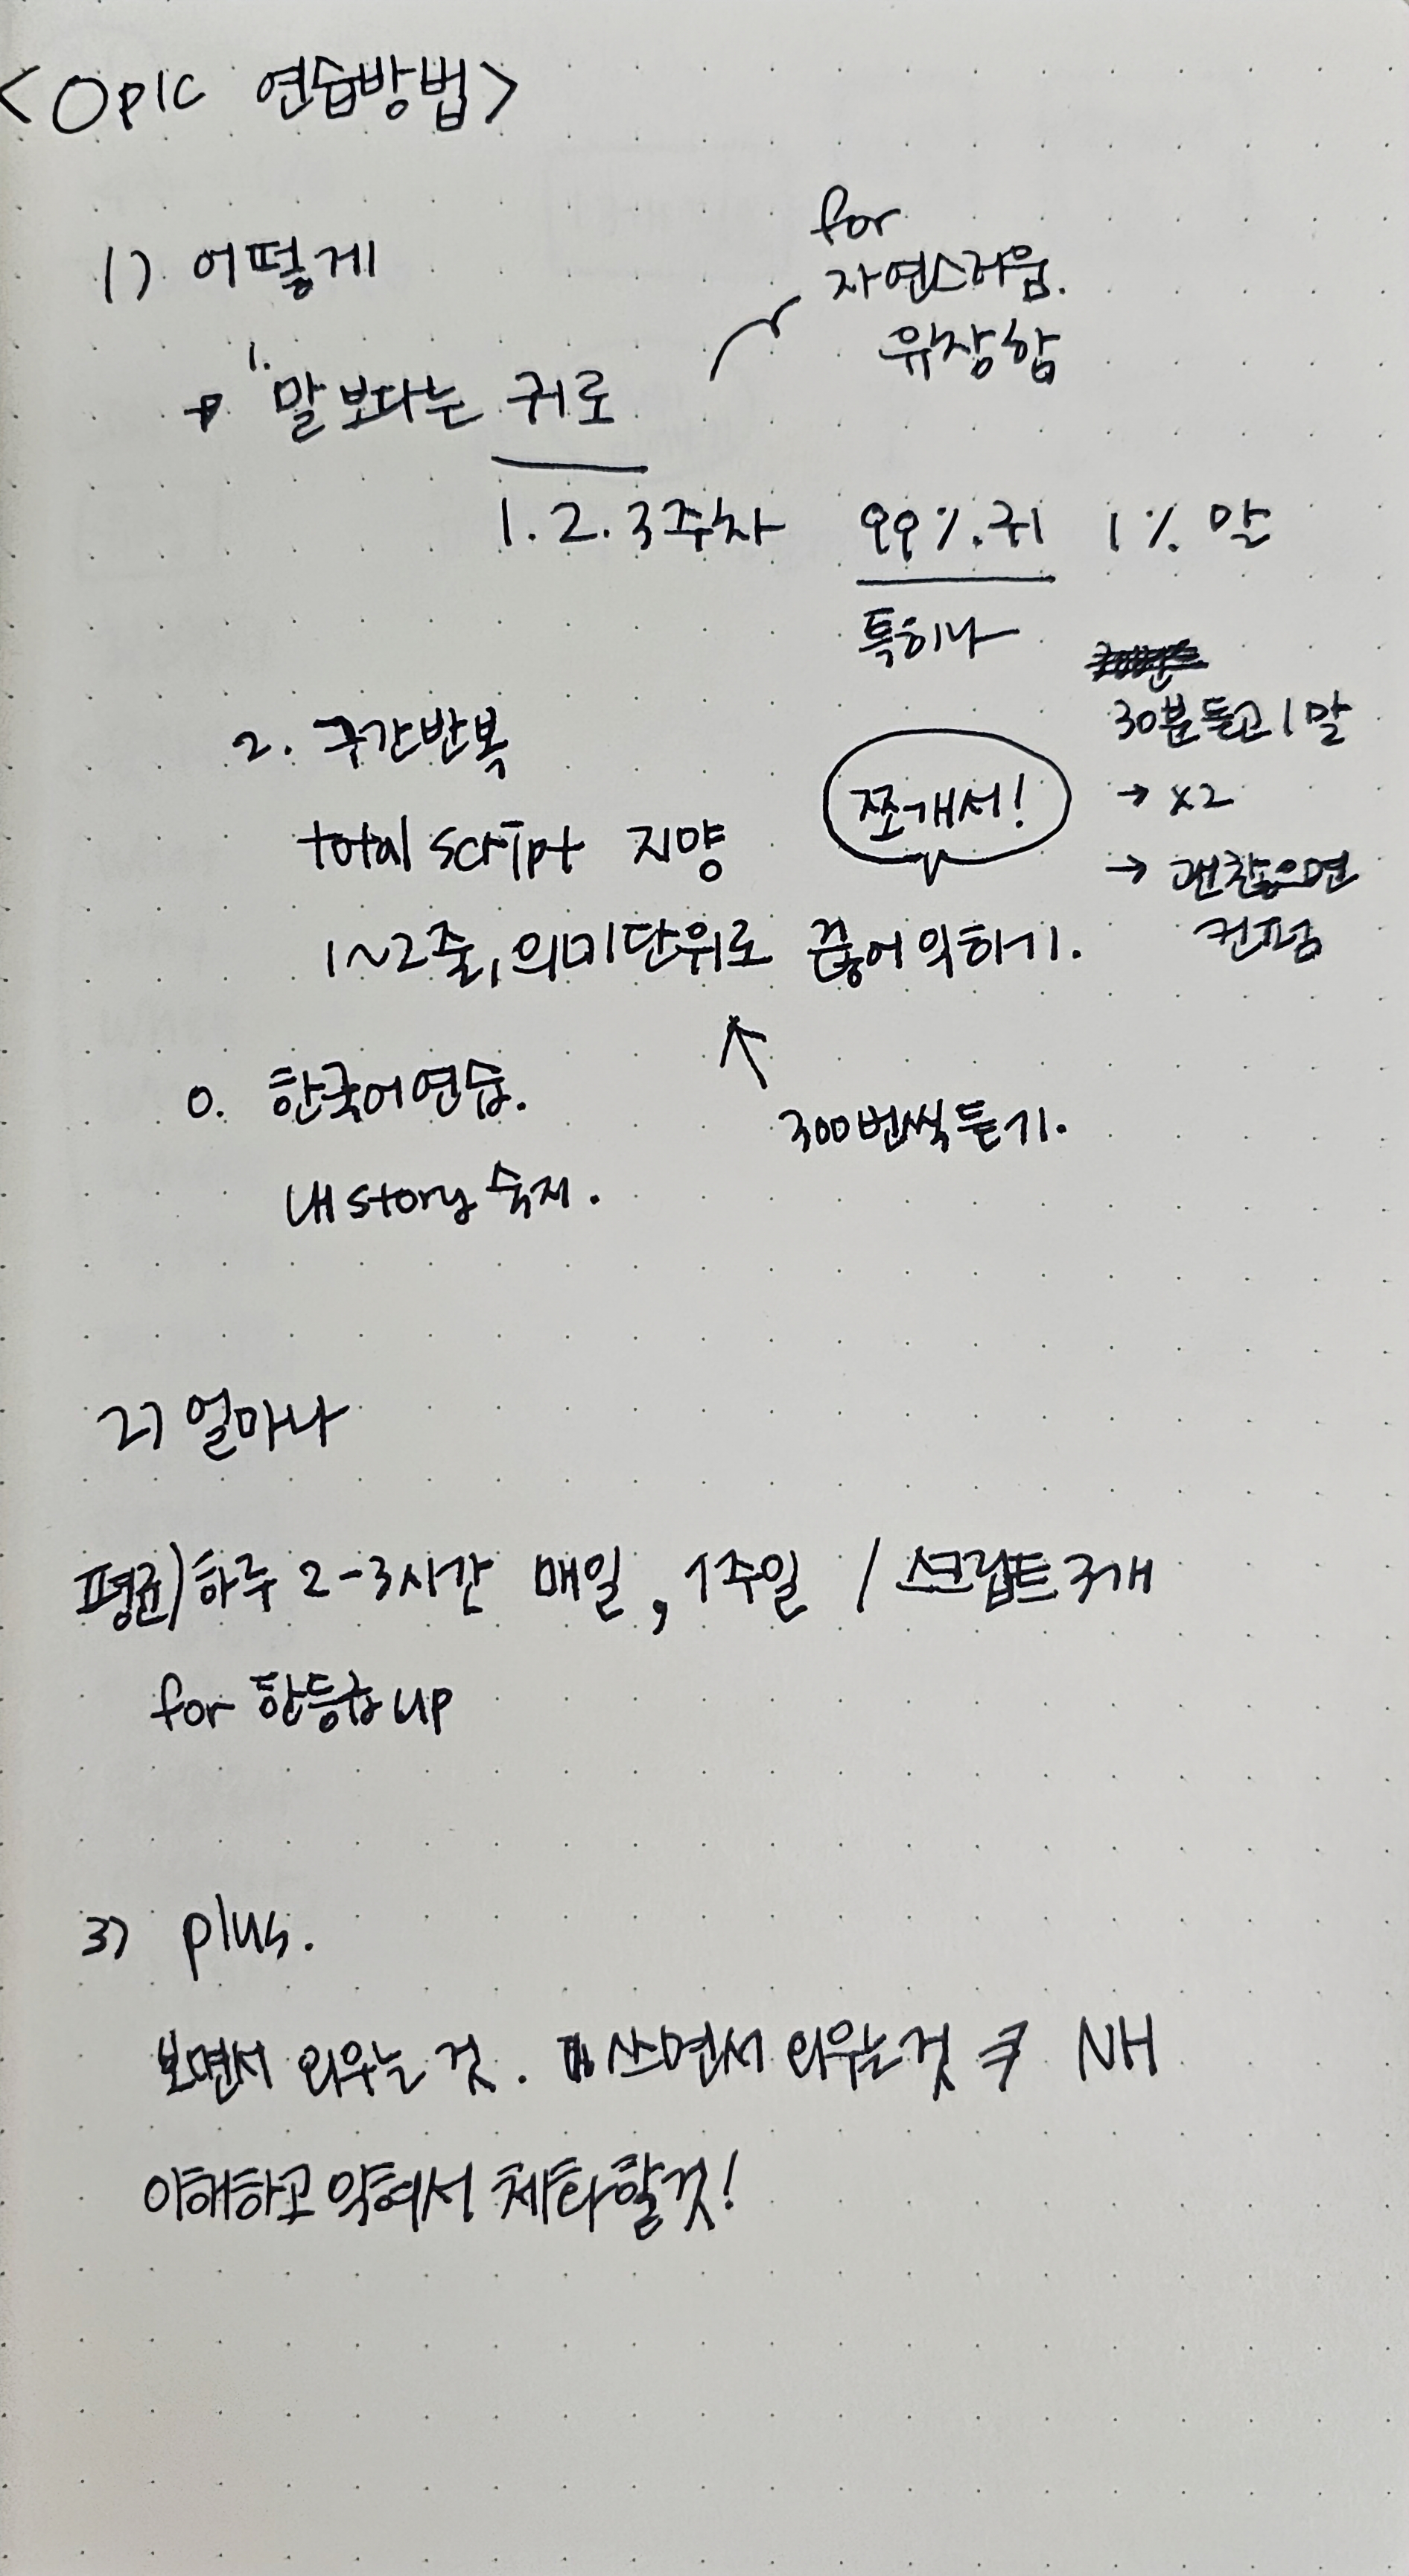 <Opic 연습방법>
1) 어떻게
for
자연스러움.
유창함
1. 말보다는 귀로
1.2.3주차 99%.귀 1% 말
특히나
30분듣고 1말
→ x2
→ 괜찮으면
컨펌
2. 구간반복
쪼개서!
total script 지양
1~2줄, 의미단위로 끊어 익히기.
300번씩 듣기.
0. 한국어연습.
내 story 숙지.
2) 얼마나
평균) 하루 2-3시간 매일, 1주일 / 스크립트 3개
for 한등급 up
3) plus.
보면서 외우는 것. 쓰면서 외우는 것 NH
이해하고 익혀서 체화할 것!